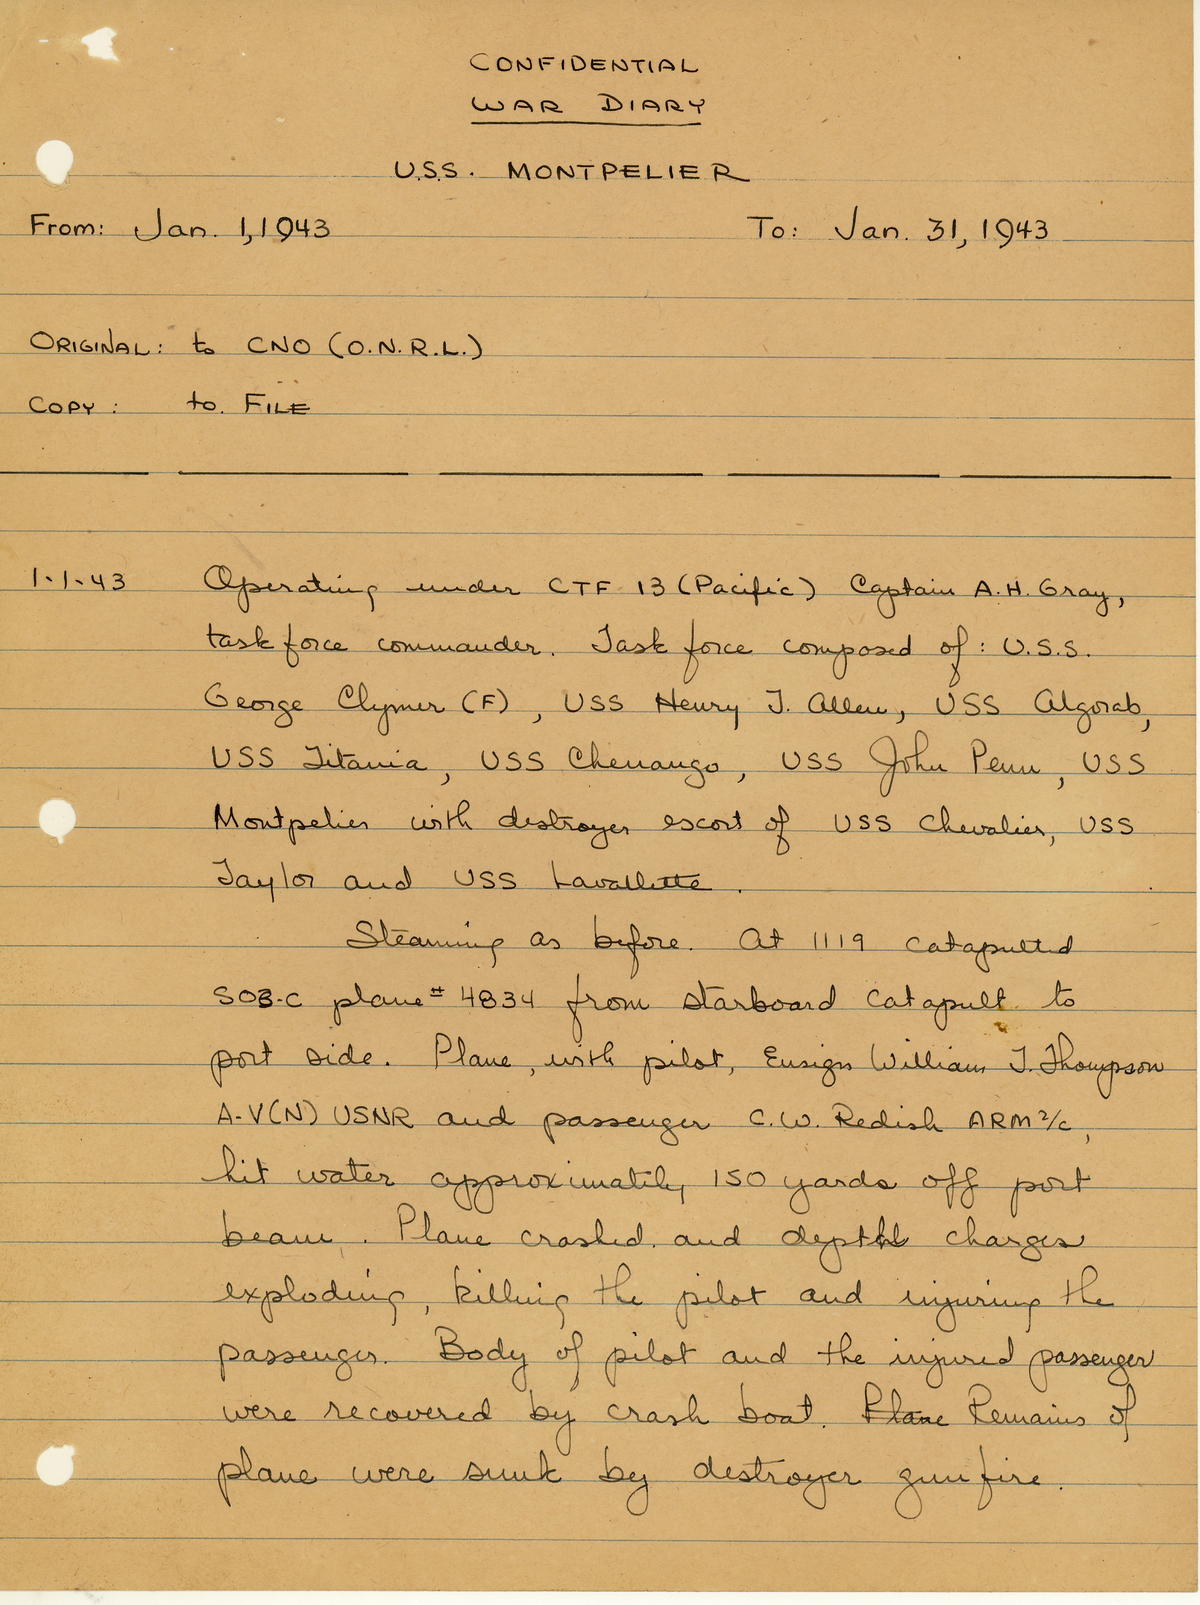 CONFIDENTIAL
WAR DIARY
U.S.S. MONTPELIER
From: Jan. 1, 1943 To: Jan. 31, 1943
ORIGINAL: to CNO (O.N.R.L.)
COPY: to FILE
1-1-43 Operating under CTF 13 (Pacific) Captain A.H. Gray,
task force commander. Task force composed of: U.S.S.
George Clymer (F), USS Henry T. Allen, USS Algorab,
USS Titania, USS Chenango, USS John Penn, USS
Montpelier with destroyer escort of USS Chevalier, USS
Taylor and USS Lavallette.
Steaming as before. At 1119 catapulted
SO3-C plane # 4834 from starboard catapult to
port side. Plane, with pilot, Ensign William T. Thompson
A-V(N) USNR and passenger C.W. Redish ARM 2/c,
hit water approximately 150 yards off port
beam. Plane crashed and depth charges
exploding, killing the pilot and injuring the
passenger. Body of pilot and the injured passenger
were recovered by crash boat. Plane Remains of
plane were sunk by destroyer gunfire.